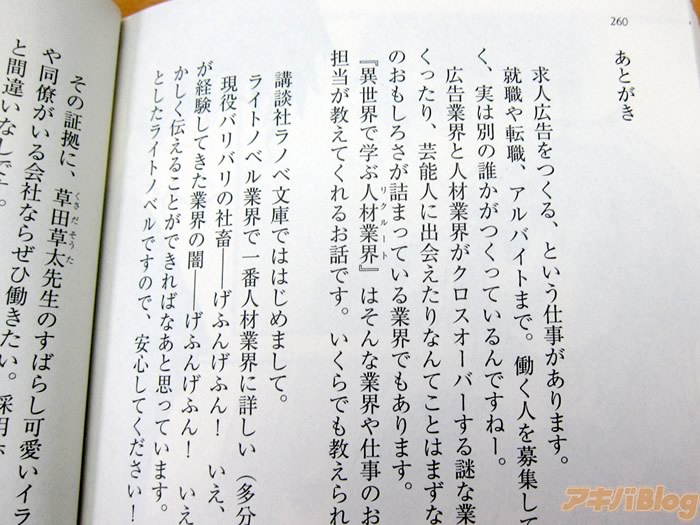 260
あとがき
求人広告をつくる、という仕事があります。
就職や転職、アルバイトまで。働く人を募集して
く、実は別の誰かがつくっているんですねー。
広告業界と人材業界がクロスオーバーする謎な業
くったり、芸能人に出会えたりなんてことはまずな
のおもしろさが詰まっている業界でもあります。
『異世界で学ぶ人材業界』はそんな業界や仕事のお
リクルート
担当が教えてくれるお話です。いくらでも教えられ
講談社ラノベ文庫でははじめまして。
ライトノベル業界で一番人材業界に詳しい（多分
現役バリバリの社畜――げふんげふん！　いえ、
が経験してきた業界の闇――げふんげふん！　いえ
かしく伝えることができればなあと思っています。
としたライトノベルですので、安心してください！
その証拠に、草田草太先生のすばらし可愛いイラ
くさだそうた
や同僚がいる会社ならぜひ働きたい。採用
と間違いなしです。
アキバBlog